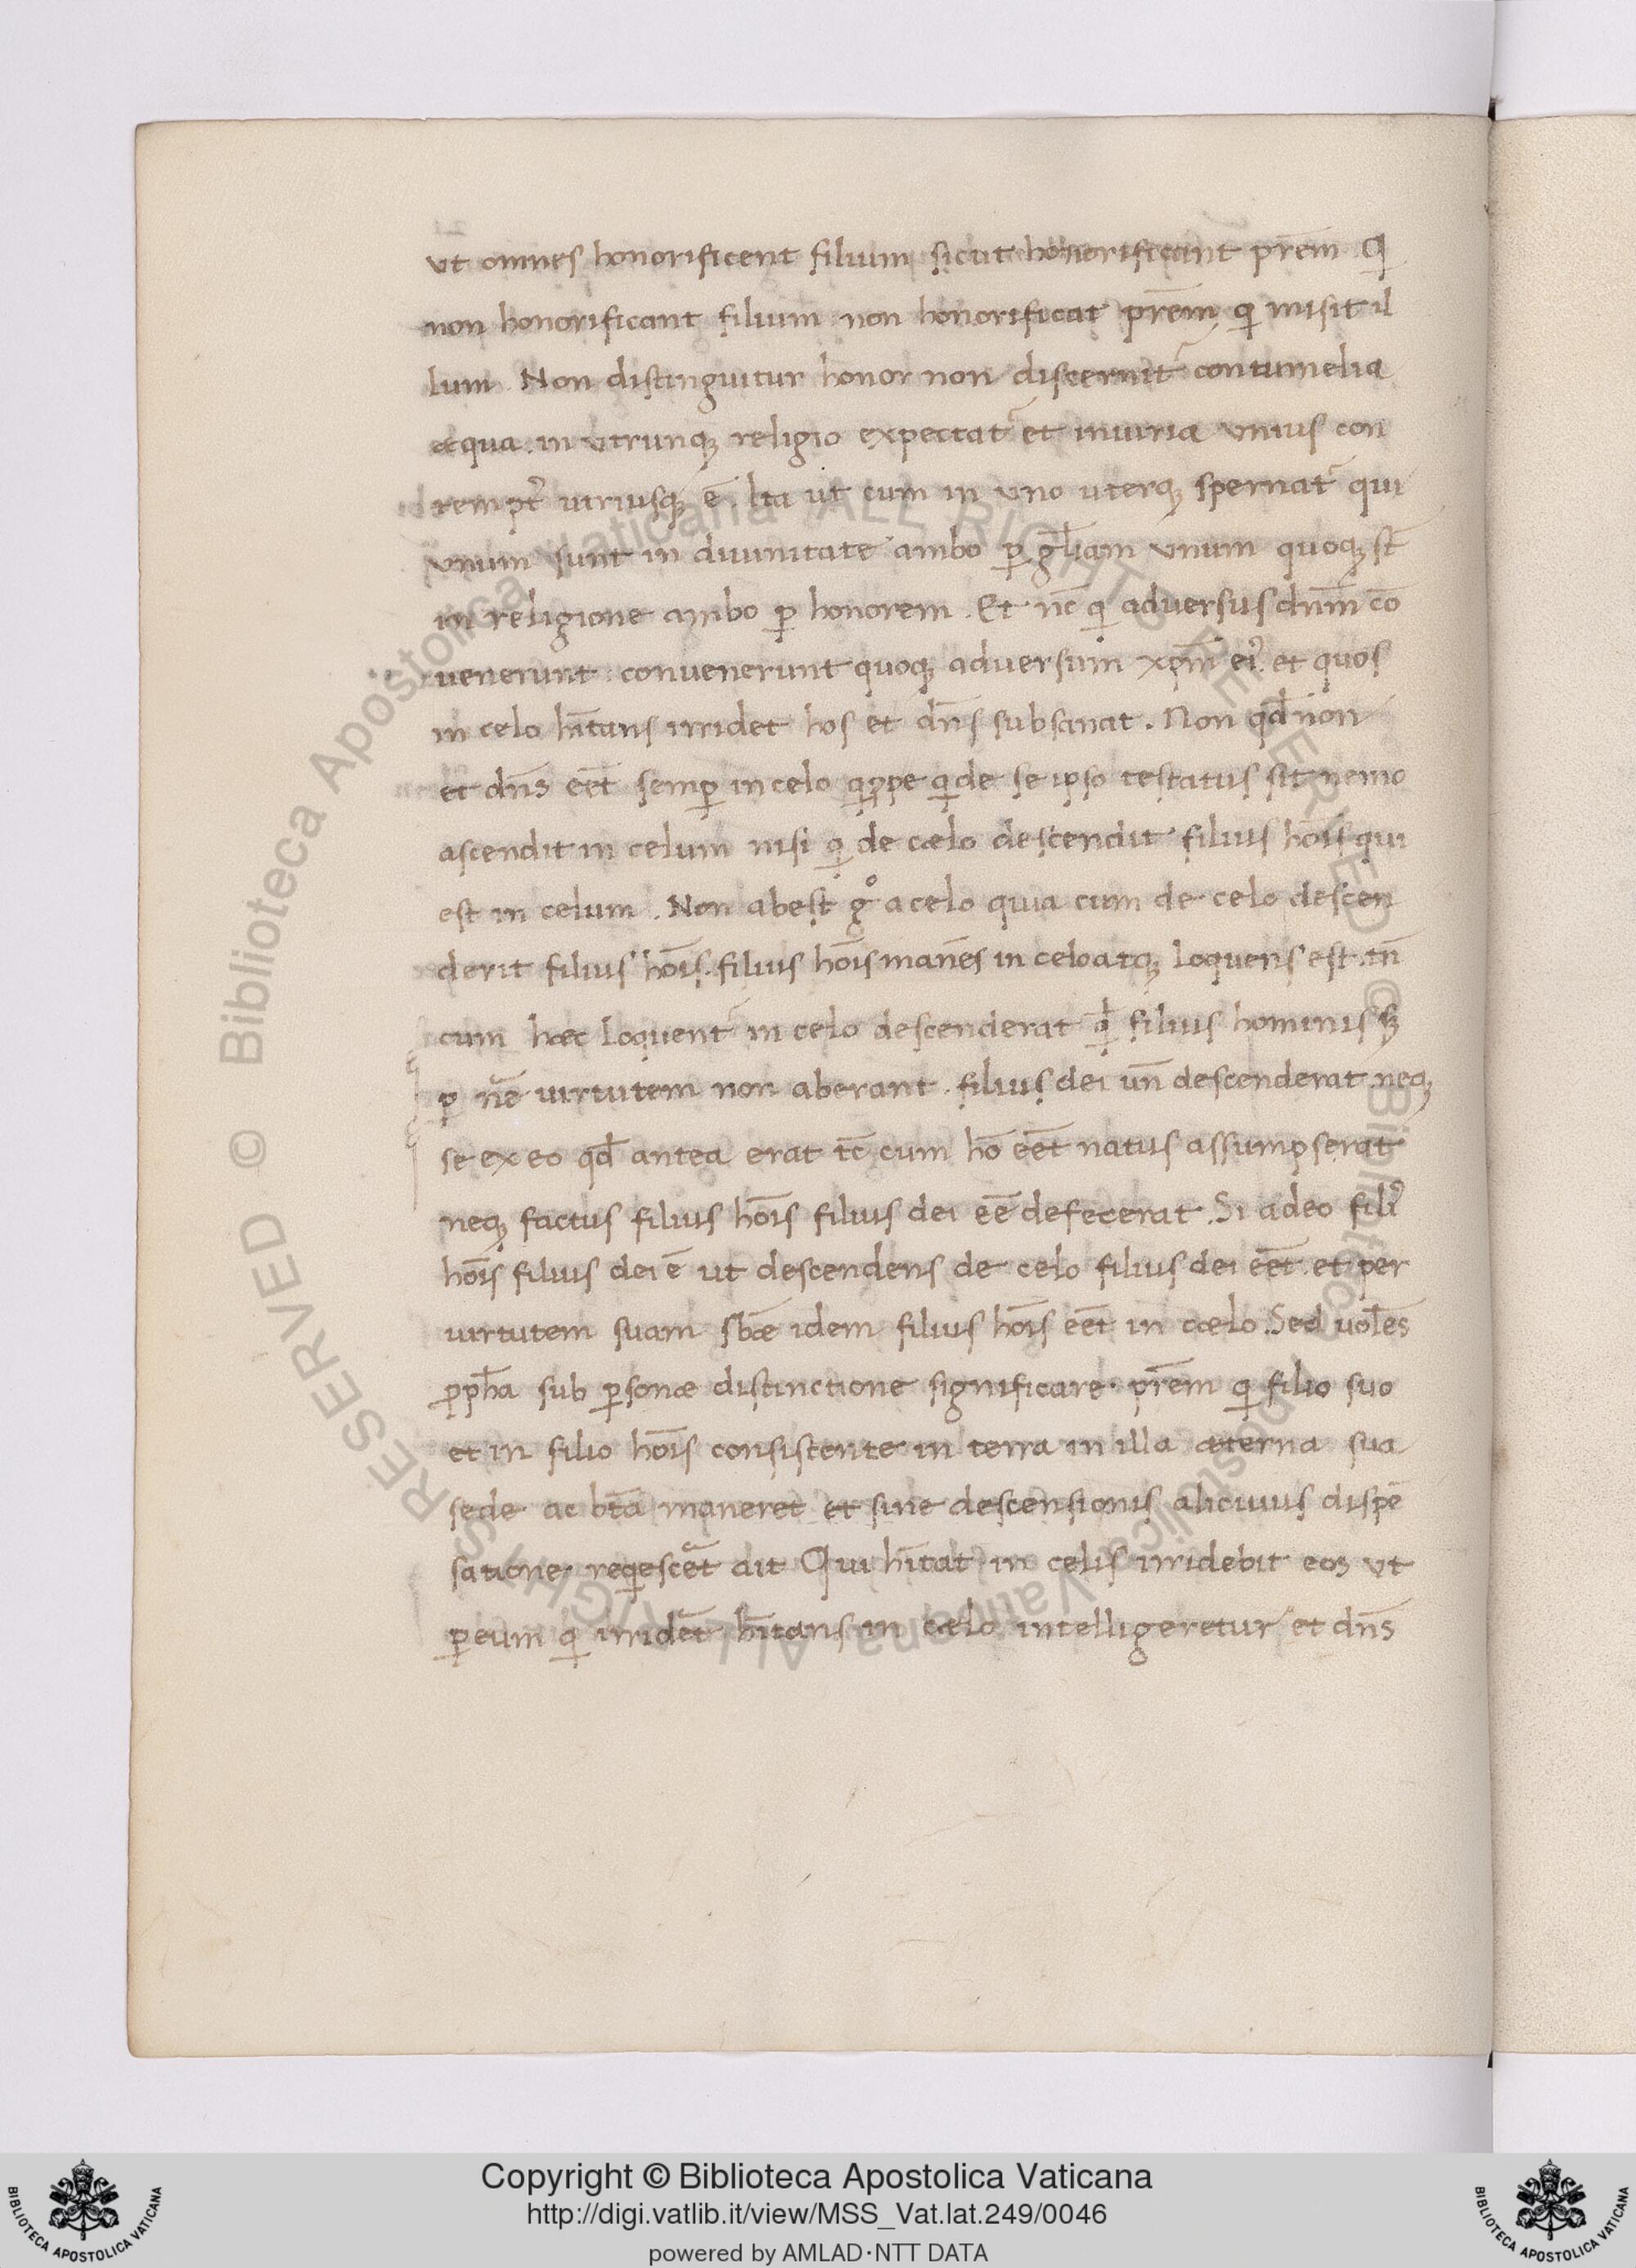 ut omnes honorificent filium sicut honorificant prēm Qi
non honorificant filium non honorificat prēm qi misit il
lum . Non distinguitur honor non discernit᷑ contumelia
æqua in utrunqꝫ religio expectat᷑ et iniuria unius con
utriusqꝫ ē. Ita ut cum in uno uterqꝫ spernat᷑ qui
unum sunt in divinitate ambo ꝑ gl̄iam unum quoqꝫ st̄
in religione ambo ꝑ honorem . Et nc̄ qi adversus dnm̄ cō
venerunt convenerunt quoqꝫ adversum xpm̄ eiꝰ. et quos
in celo hīt̄ans irridet hos et dn̄s subsanat . Non qd̄ non
et dn̄s eēt semꝑ in celo qippe qi de se ipso testatus sit nemo
ascendit in celum nisi qi de cælo descendit filius hoīs qui
est in celum . Non abest gͦ a celo quia cum de celo descen
derit filius hoīs. filius hoīs manēs in celo atqꝫ loquens est . tn̄
cum hæc loquent᷑ in celo descenderat filius hominis sꝫ
ꝑ virtutem non aberant . filius dei un̄ descenderat neqꝫ
se ex eo qd̄ antea erat tc̄ cum hō eēt natus assumpserat
neqꝫ factus filius hoīs filius dei eē defecerat . Si adeo filiꝰ
hoīs filius dei ē ut descendens de celo filius dei eēt et per
virtutem suam idem filius hoīs eēt in cælo . Sed vol̄es
ꝓph̄a sub ꝑsonæ distinctione significare prēm qi filio suo
et in filio hoīs consistente in terra in illa æterna sua
sede ac bt̄a maneret et sine descensionis alicuius dispē
satione reqiescēt ait Qui hīt̄at in celis irridebit eos ut
ꝑ eum qi irridēt hīt̄ans in cælo intelligeretur et dn̄s
© Biblioteca Apostolica Vaticana ALL RIGHTS RESERVED © Biblioteca Apostolica Vaticana ALL RIGHTS RESERVED
Copyright © Biblioteca Apostolica Vaticana
http://digi.vatlib.it/view/MSS_Vat.lat.249/0046
powered by AMLAD·NTT DATA
BIBLIOTECA APOSTOLICA VATICANA
BIBLIOTECA APOSTOLICA VATICANA